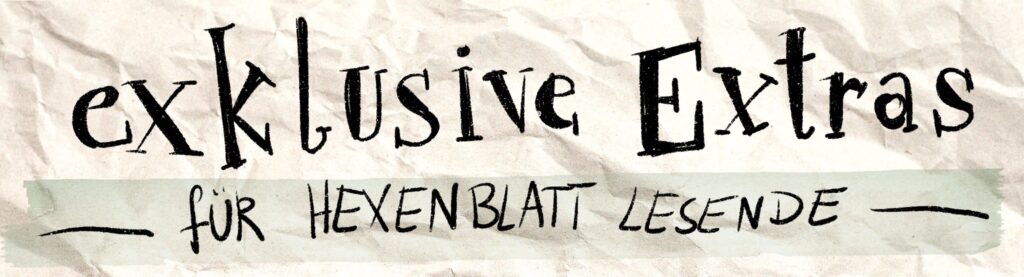 exklusive Extras
— für HEXENBLATT LESENDE —